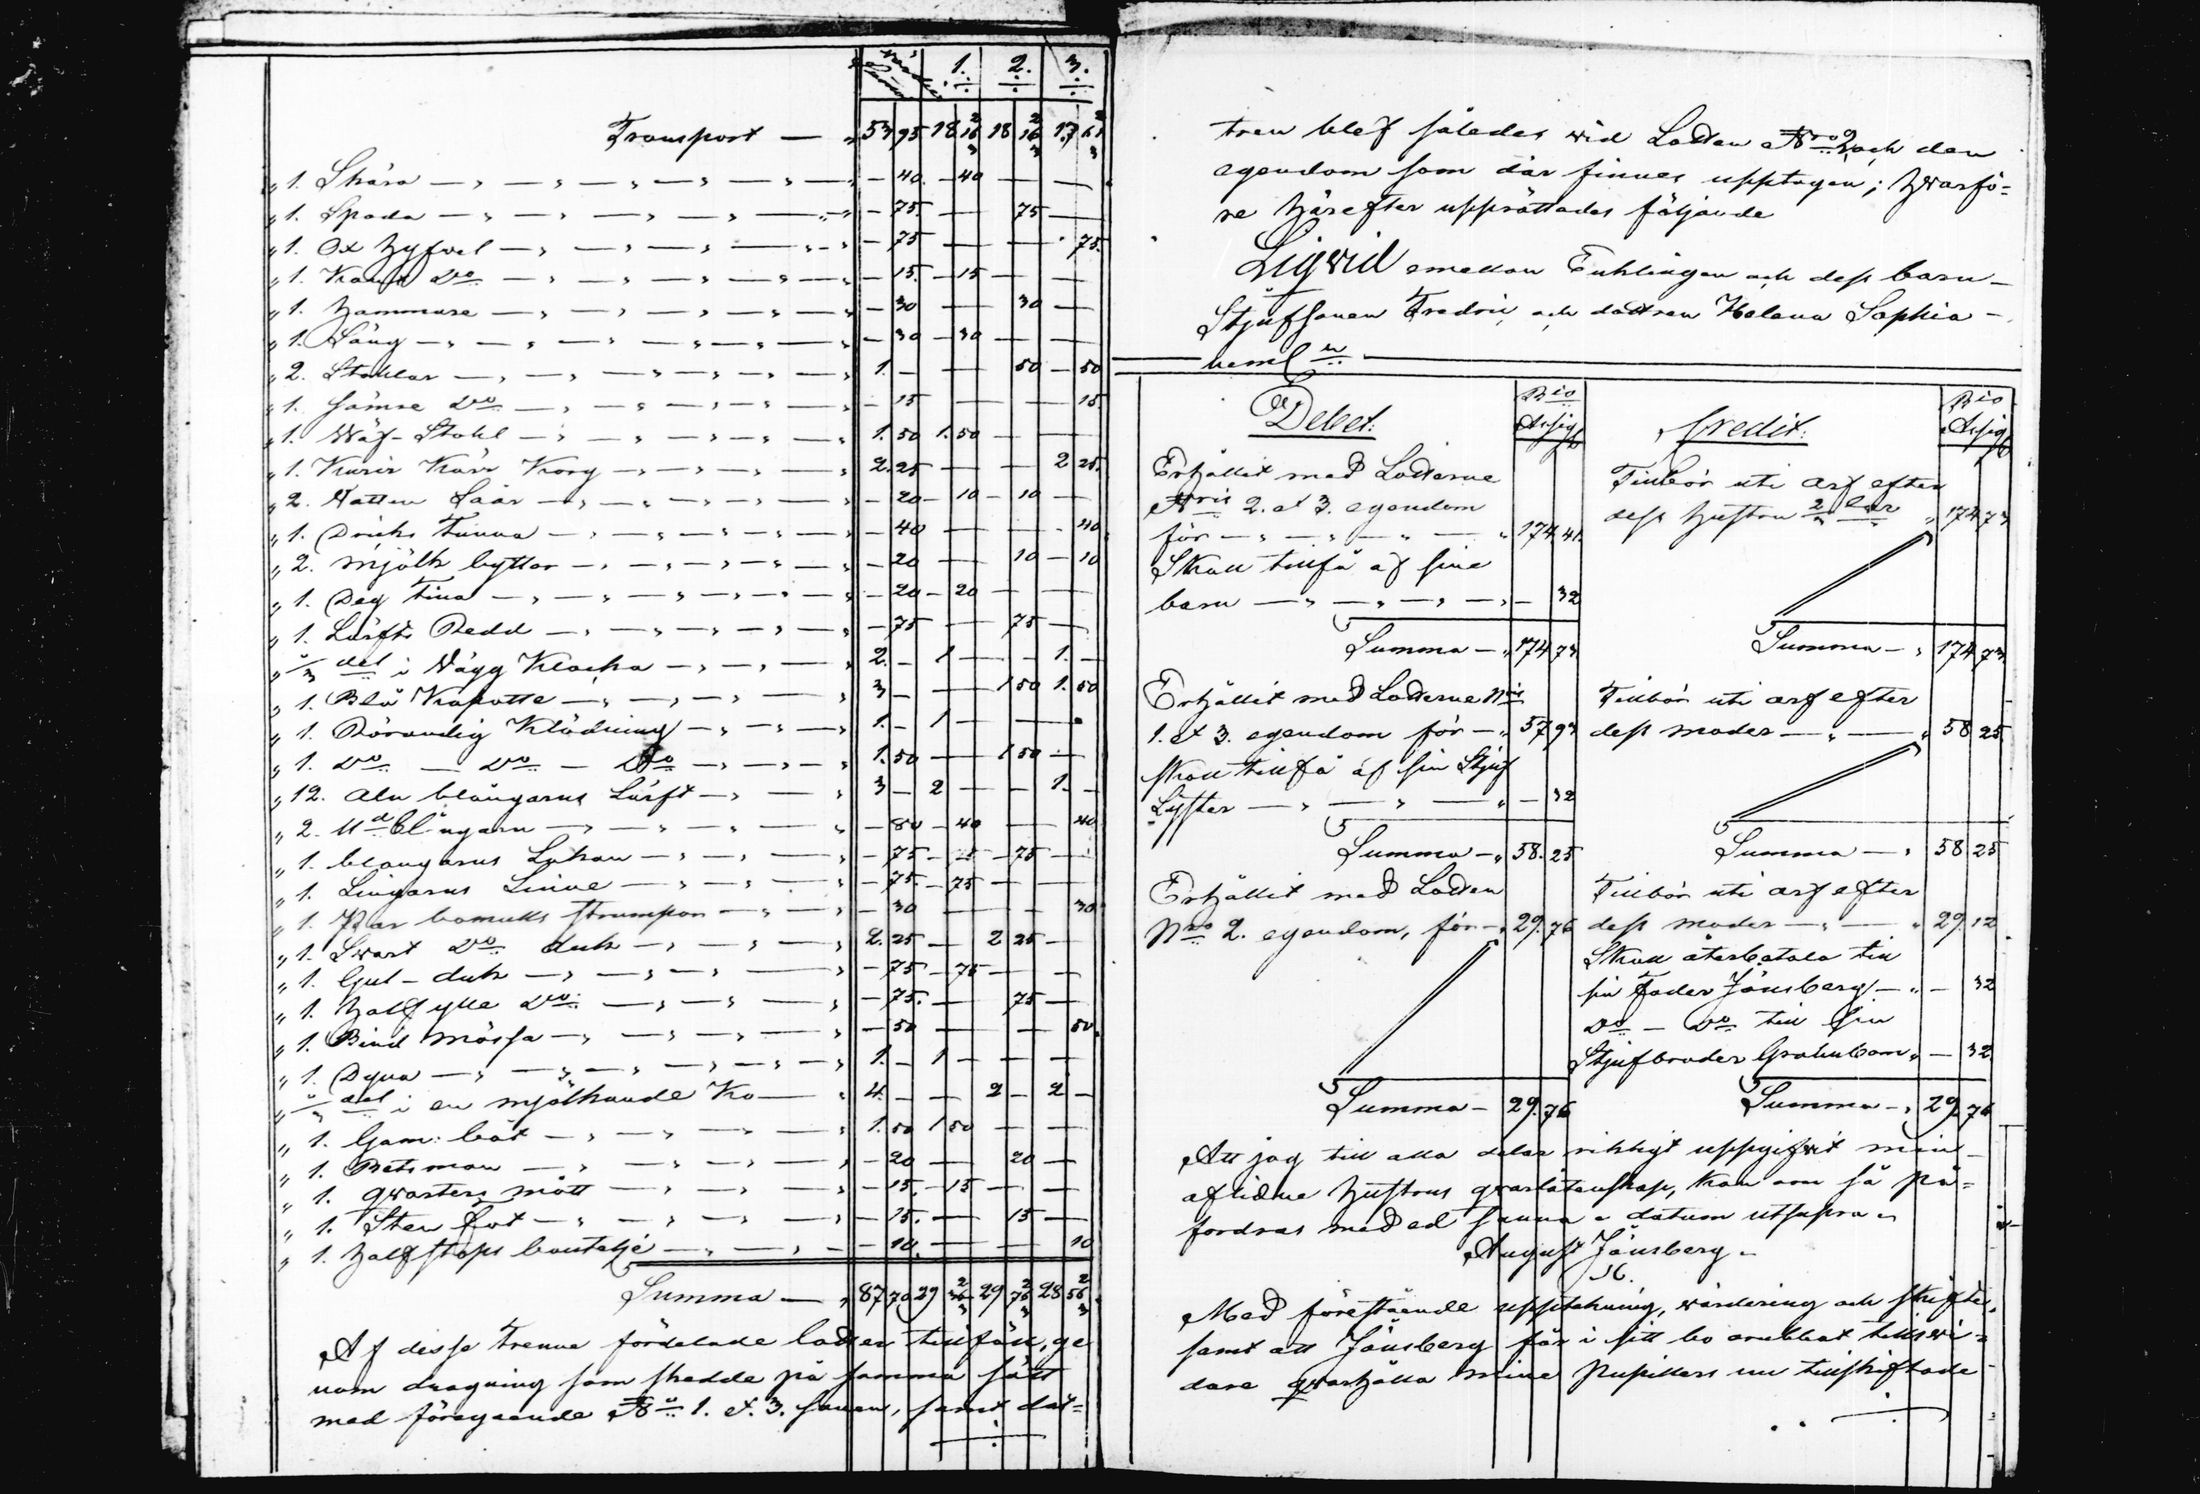 Mödernes Summa 1. 2. 3.
Transport — „ 53 95 18 16 2/3 18 16 2/3 17 61 2/3
„ 1. Skära — 40. — 40
„ 1. Spada — 75. — 75
„ 1. Ox Hyfvel — 75 — 75.
„ 1. Kant Do — 15. — 15
„ 1. Hammare — 30 — 30
„ 1. Såug — 30 — 30
„ 2. Stohlar — 1. — 50 — 50
„ 1. sämre Do — 15 — 15.
„ 1. Wäf-Stohl — 1. 50 1. 50
„ 1. Kärr Korg — 2. 25 — 2 25.
„ 2. Watten Såår — 20 — 10 — 10
„ 1. Dricks Tunna — 40 — 40
„ 2. Mjölk byttor — 20 — 10 — 10
„ 1. Deg Tina — 20 — 20
„ 1. Lärfts Redd — 75 — 75
„ del i Wägg Klocka — 2. — 1 — 1. —
„ 1. Blå Kapotte — 3 — 1 50 1. 50
„ 1. Rörandig Klädning — 1. — 1
„ 1. Do — Do — Do — 1. 50 — 1 50
„ 12. aln blångarns Lärft — 3 — 2 — 1. —
„ 2. Md blångarn — 80 — 40 — 40
„ 1. blångarns Lakan — 75 — 75
„ 1. Lingarns Linne — 75. — 75
„ 1. Par bomulls strumpor — 30 — 30
„ 1. Swart Do duk — 2. 25 — 2 25
„ 1. Gul-duk — 75 — 75
„ 1. Halfylle Do — 75. — 75
„ 1. Bind Mössa — 50 — 50.
„ 1. Dyna — 1. — 1
„ del i en mjölkande Ko — 4. — 2 — 2 —
„ 1. Gam: båt — 1. 50 1 50
„ 1. Betsman — 20 — 20
„ 1. qwarters mått — 15. — 15
„ 1. Sten fat — 15. — 15
„ 1. Halfstops boutelje — 10. — 10
Summa — „ 87 70 29 36 2/3 29 76 2/3 28 56 2/3
Af desse trenne fördelade lotter tillföll, ge
nom dragning som skedde på samma sätt
med föregående No 1. et. 3. sonen, samt dot=
tren blef således wid Lotten Nro 2, och den
egendom som där finnes upptagen; hwarfö=
re härefter upprättades följande
Liqvid emellan Enklingen och dess barn—
Stjufsonen Fredric, och dottren Helena Sophia—
neml en
Debet: Rdr Assig. Credit: Rdr Assig.
Erhållit med Lotterne
Nris 2. et 3. egendom
för — „ 174 41.
Skall tillfå af sine
barn — 32
Summa — „ 174 73.
Tillbör uti arf efter
dess hustru 2 lar „ 174 73
Summa — „ 174 73.
Erhållit med Lotterne Nris
1. et 3. egendom för — „ 57 93
skall tillfå af sin Stjuf
Syster — „ — 32
Summa — „ 58. 25
Tillbör uti arf efter
dess moder — „ 58 25.
Summa — „ 58 25
Erhållit med Lotten
Nro 2. egendom, för — „ 29. 76
Summa — 29. 76
Tillbör uti arf efter
dess moder — „ 29. 12
Skall återbetala till
sin Fader Jönsberg — „ — 32
Do — Do till sin
Stjufbroder Grahnbom „ — 32.
Summa — „ 29. 76
Att jag till alla delar riktigt uppgifvit min
aflidne hustrus qvarlåtenskap, kan om så på=
fordras med ed sanna - datum utsupra -
August Jönsberg.
Med förestående uppteckning, wärdering och skifte,
samt att Jönsberg får i sitt bo orubbat tillswi=
dare qwarhålla mine Pupillers nu tillskiftade